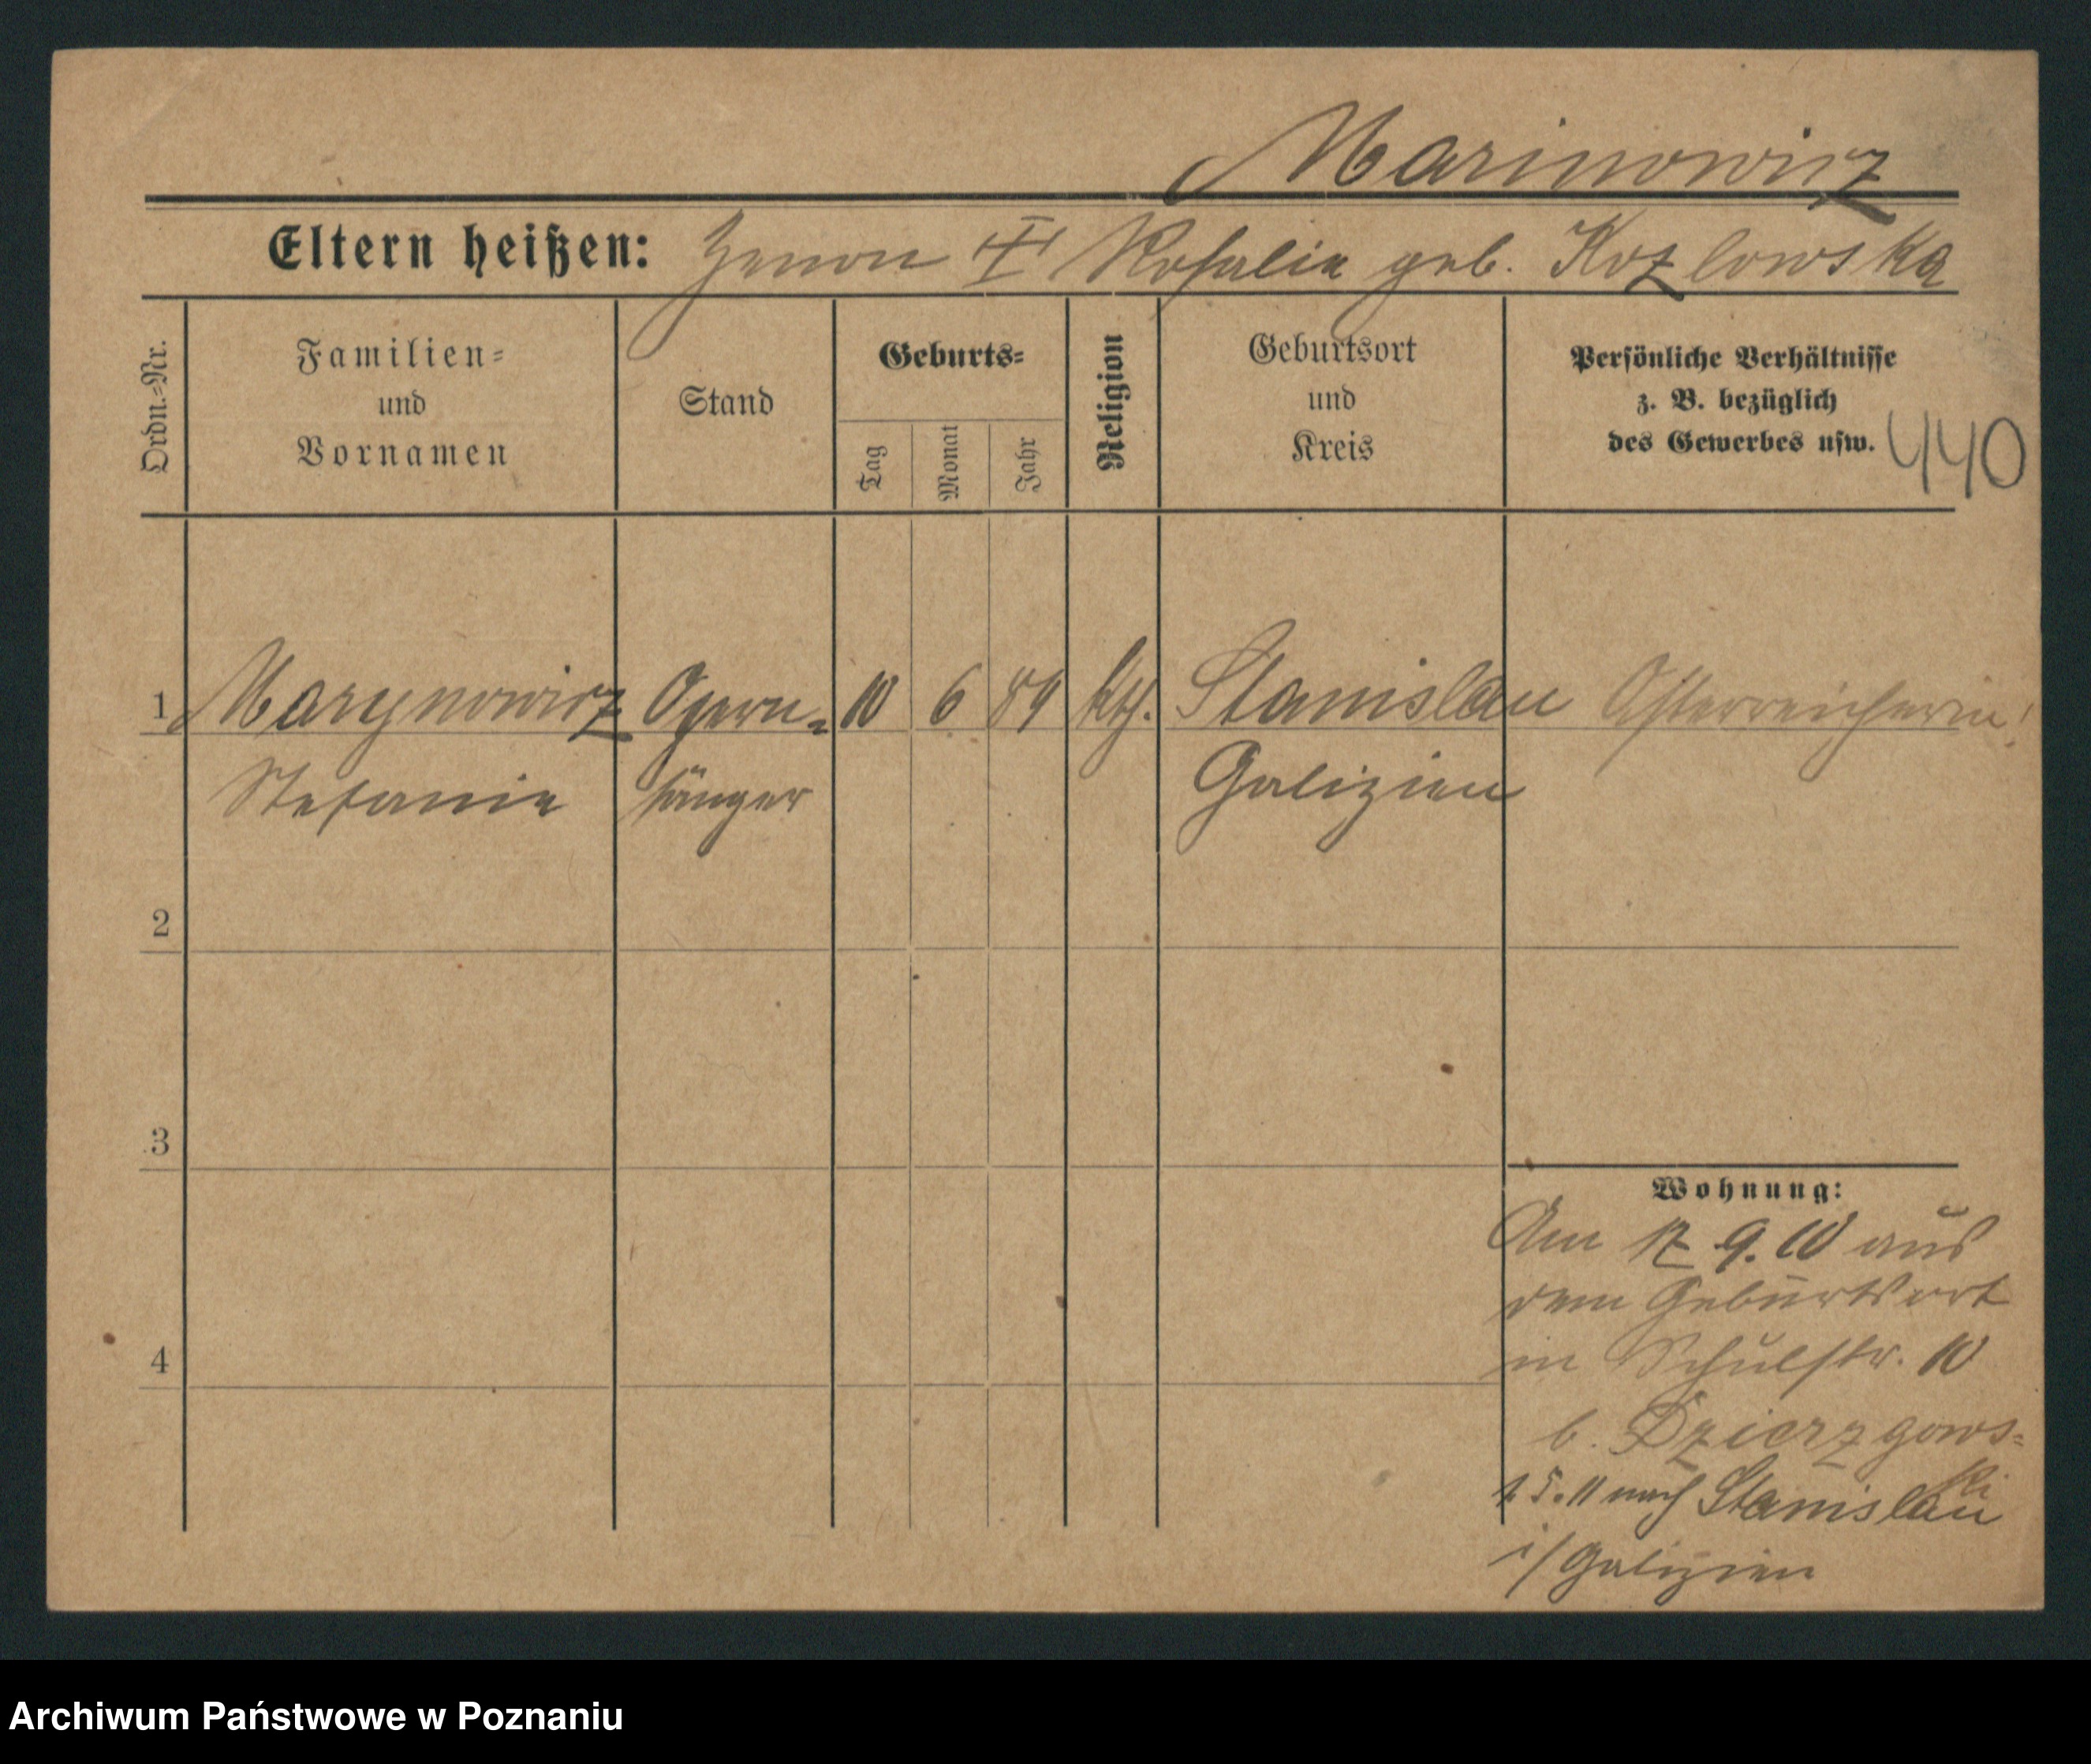 Marinowicz
Eltern heißen: Zenon † Rosalia geb. Kozlowska
Ordn.-Nr.
Familien-
und
Vornamen
Stand
Geburts-
Tag
Monat
Jahr
Religion
Geburtsort
und
Kreis
Persönliche Verhältnisse
z. B. bezüglich
des Gewerbes usw.
440
1 Marynowicz Opern- 10 6 89 kth. Stanislau Österreicherin!
Stefania sänger Galizien
2
3
4
Wohnung:
Am 17 9. 10 aus
dem Geburtsort
in Schulstr. 10
b. Dzierzgows-
ki
1. 5. 11 nach Stanislau
i/Galizien
Archiwum Państwowe w Poznaniu